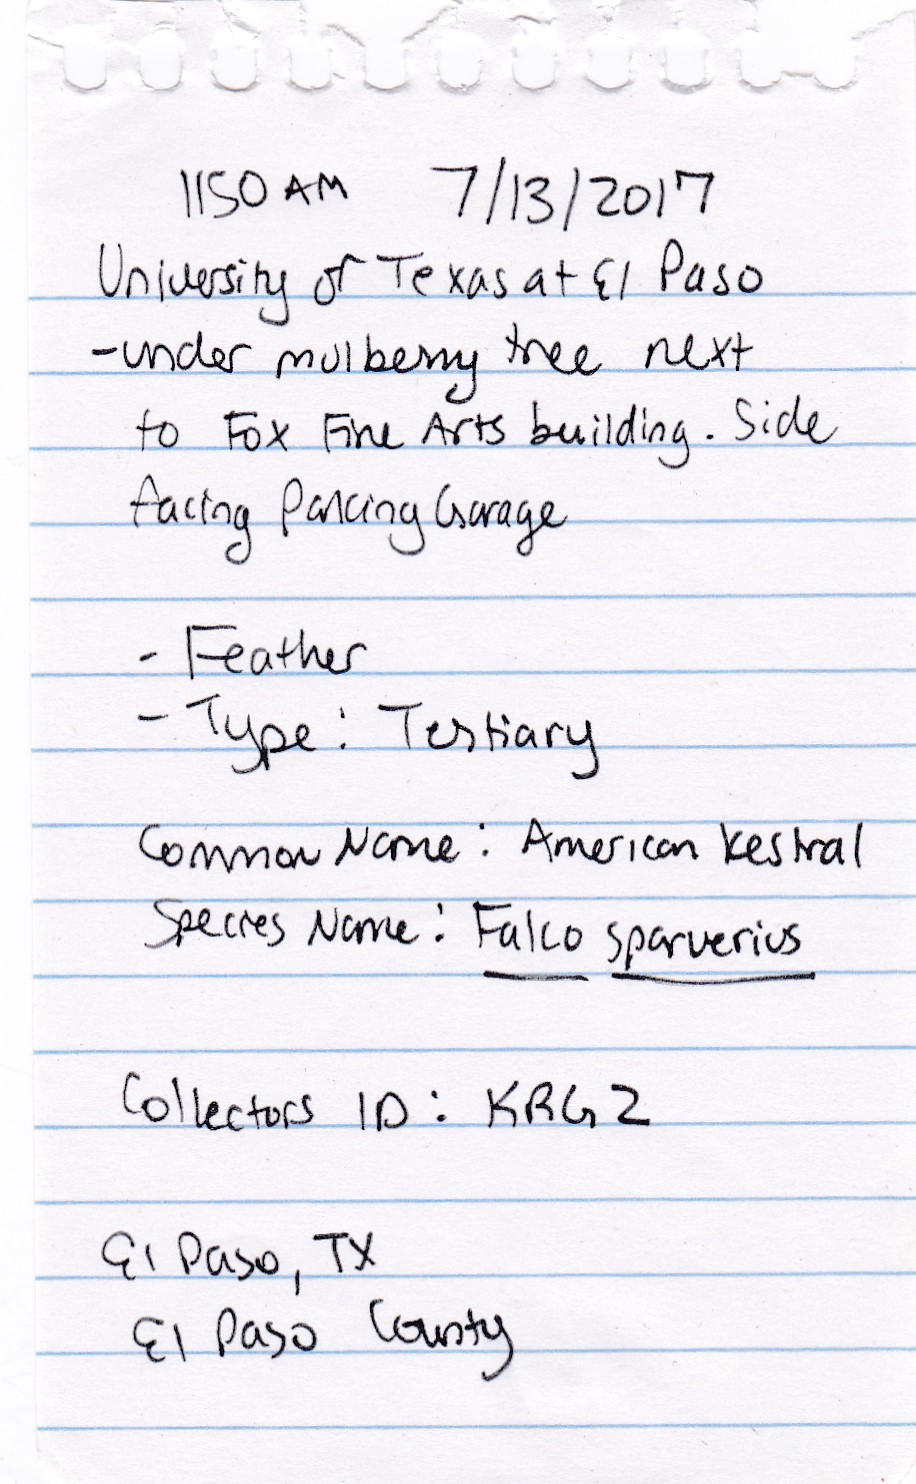 1150 AM 7/13/2017
University of Texas at El Paso
-under mulberry tree next
to Fox Fine Arts building. Side
facing Parking Garage
- Feather
- Type: Tertiary
Common Name: American Kestral
Species Name: Falco sparverius
Collectors ID: KRG2
El Paso, TX
El Paso County